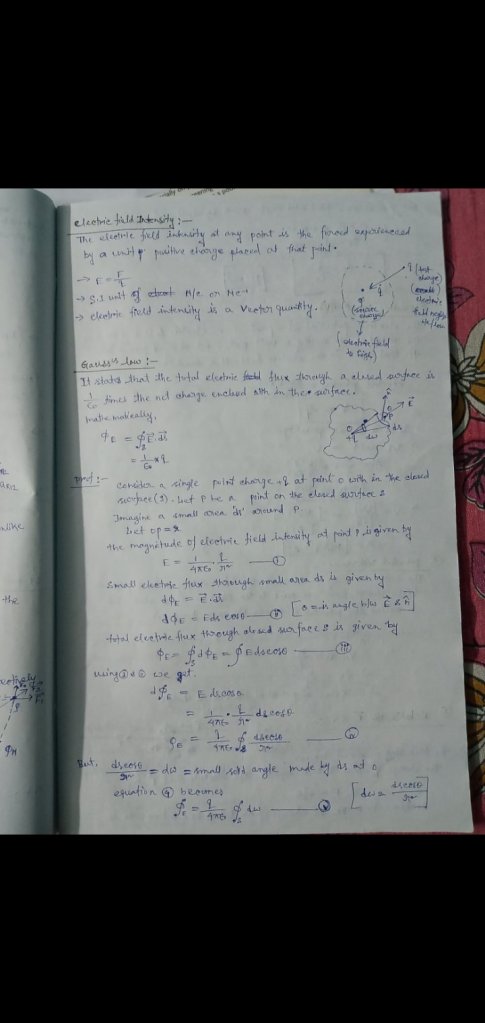 electric field Intensity :—
The electric field intensity at any point is the forced experienced
by a unit positive charge placed at that point.
→ E = F/q
→ S.I unit of N/c or Nc⁻¹
→ electric field intensity is a vector quantity.
q (test charge)
q
(source charge)
(electric field
Gauss's law :—
It states that the total electric flux through a closed surface is
1/ε₀ times the net charge enclosed with in the surface.
mathematically,
ϕE = ∮S E⃗.ds⃗
= 1/ε₀ × q
E⃗
ds
dw
+q
proof :— consider a single point charge +q at point o with in the closed
surface (S). Let P be a point on the closed surface S
Imagine a small area 'ds' around P.
Let op = r
the magnitude of electric field intensity at point P, is given by
E = 1/4πε₀ . q/r² —— ①
Small electric flux through small area ds is given by
dϕE = E⃗.ds⃗
dϕE = Eds cosθ —— ⑪ [θ = is angle b/w E⃗ & n̂]
total electric flux through closed surface S is given by
ϕE = ∮S dϕE = ∮ E ds cosθ —— ⑪⑪
using ① & ② we get.
dϕE = E ds cosθ
= 1/4πε₀ . q/r² ds cosθ
ϕE = q/4πε₀ ∮S ds cosθ/r² —— ⑭
But, ds cosθ/r² = dw = small solid angle made by ds at o
equation ④ becomes
ϕE = q/4πε₀ ∮S dw —— ⑤ [dw = ds cosθ/r²]